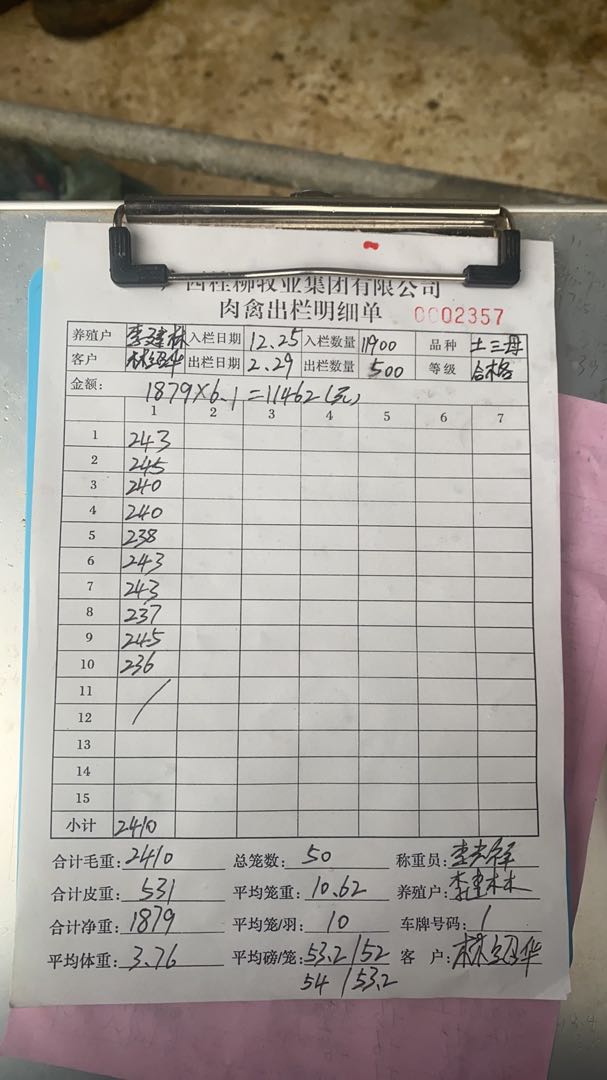 广西桂柳牧业集团有限公司
肉禽出栏明细单 0002357
养殖户 李建林 入栏日期 12.25 入栏数量 11900 品种 土三母
客户 林绍华 出栏日期 2.29 出栏数量 500 等级 合格
金额: 1879×6.1=11462(元)
1 2 3 4 5 6 7
1 243
2 245
3 240
4 240
5 238
6 243
7 243
8 237
9 245
10 236
11
12
13
14
15
小计 2410
合计毛重: 2410 总笼数: 50 称重员:
合计皮重: 531 平均笼重: 10.62 养殖户: 李建林
合计净重: 1879 平均笼/羽: 10 车牌号码: 1
平均体重: 3.76 平均磅/笼: 53.2/52 客户: 林绍华
54/53.2